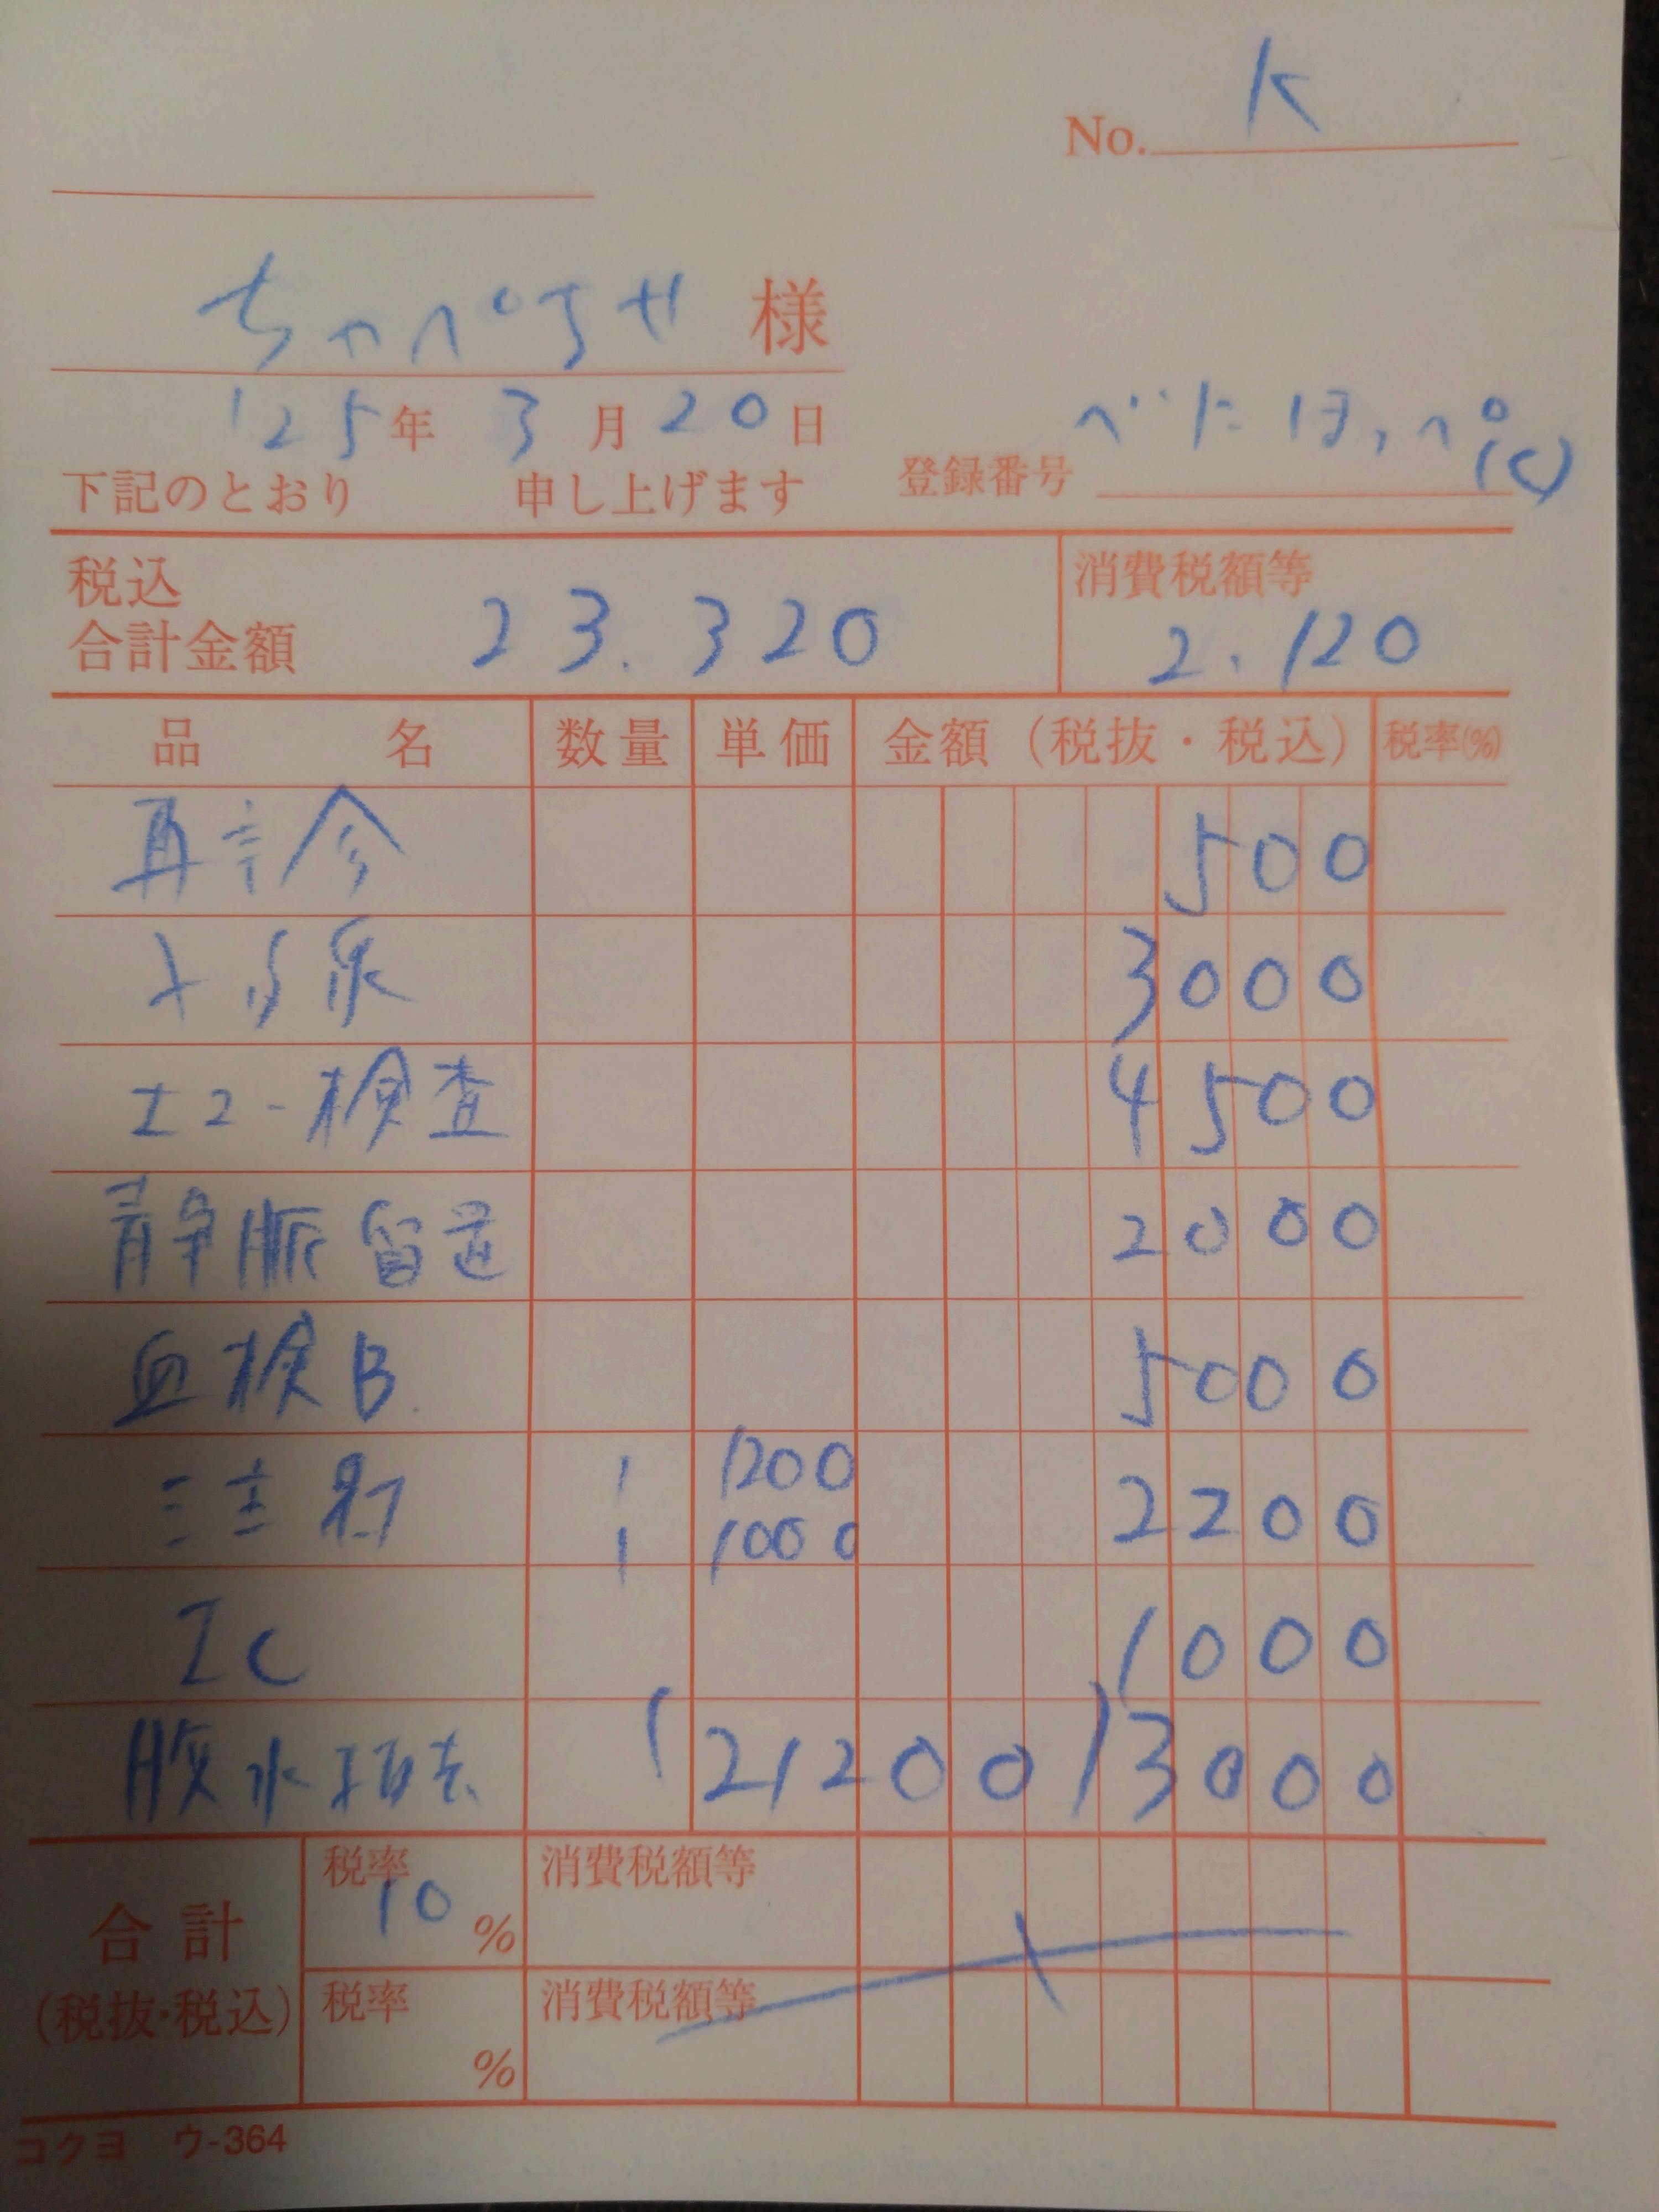 No. K
ちゃぺちせ 様
'25年 3月20日
べたほっぺ(c)
下記のとおり 申し上げます 登録番号
税込合計金額 23.320 消費税額等 2.120
品名 数量 単価 金額(税抜・税込) 税率(%)
再診 500
線 3000
エコー検査 4500
静脈留置 2000
血検B 5000
注射 1 1200 2200
1 1000
IC 1000
腹水抜去 (21200) 3000
合計 税率 10% 消費税額等
(税抜・税込) 税率 % 消費税額等
コクヨ ウ-364